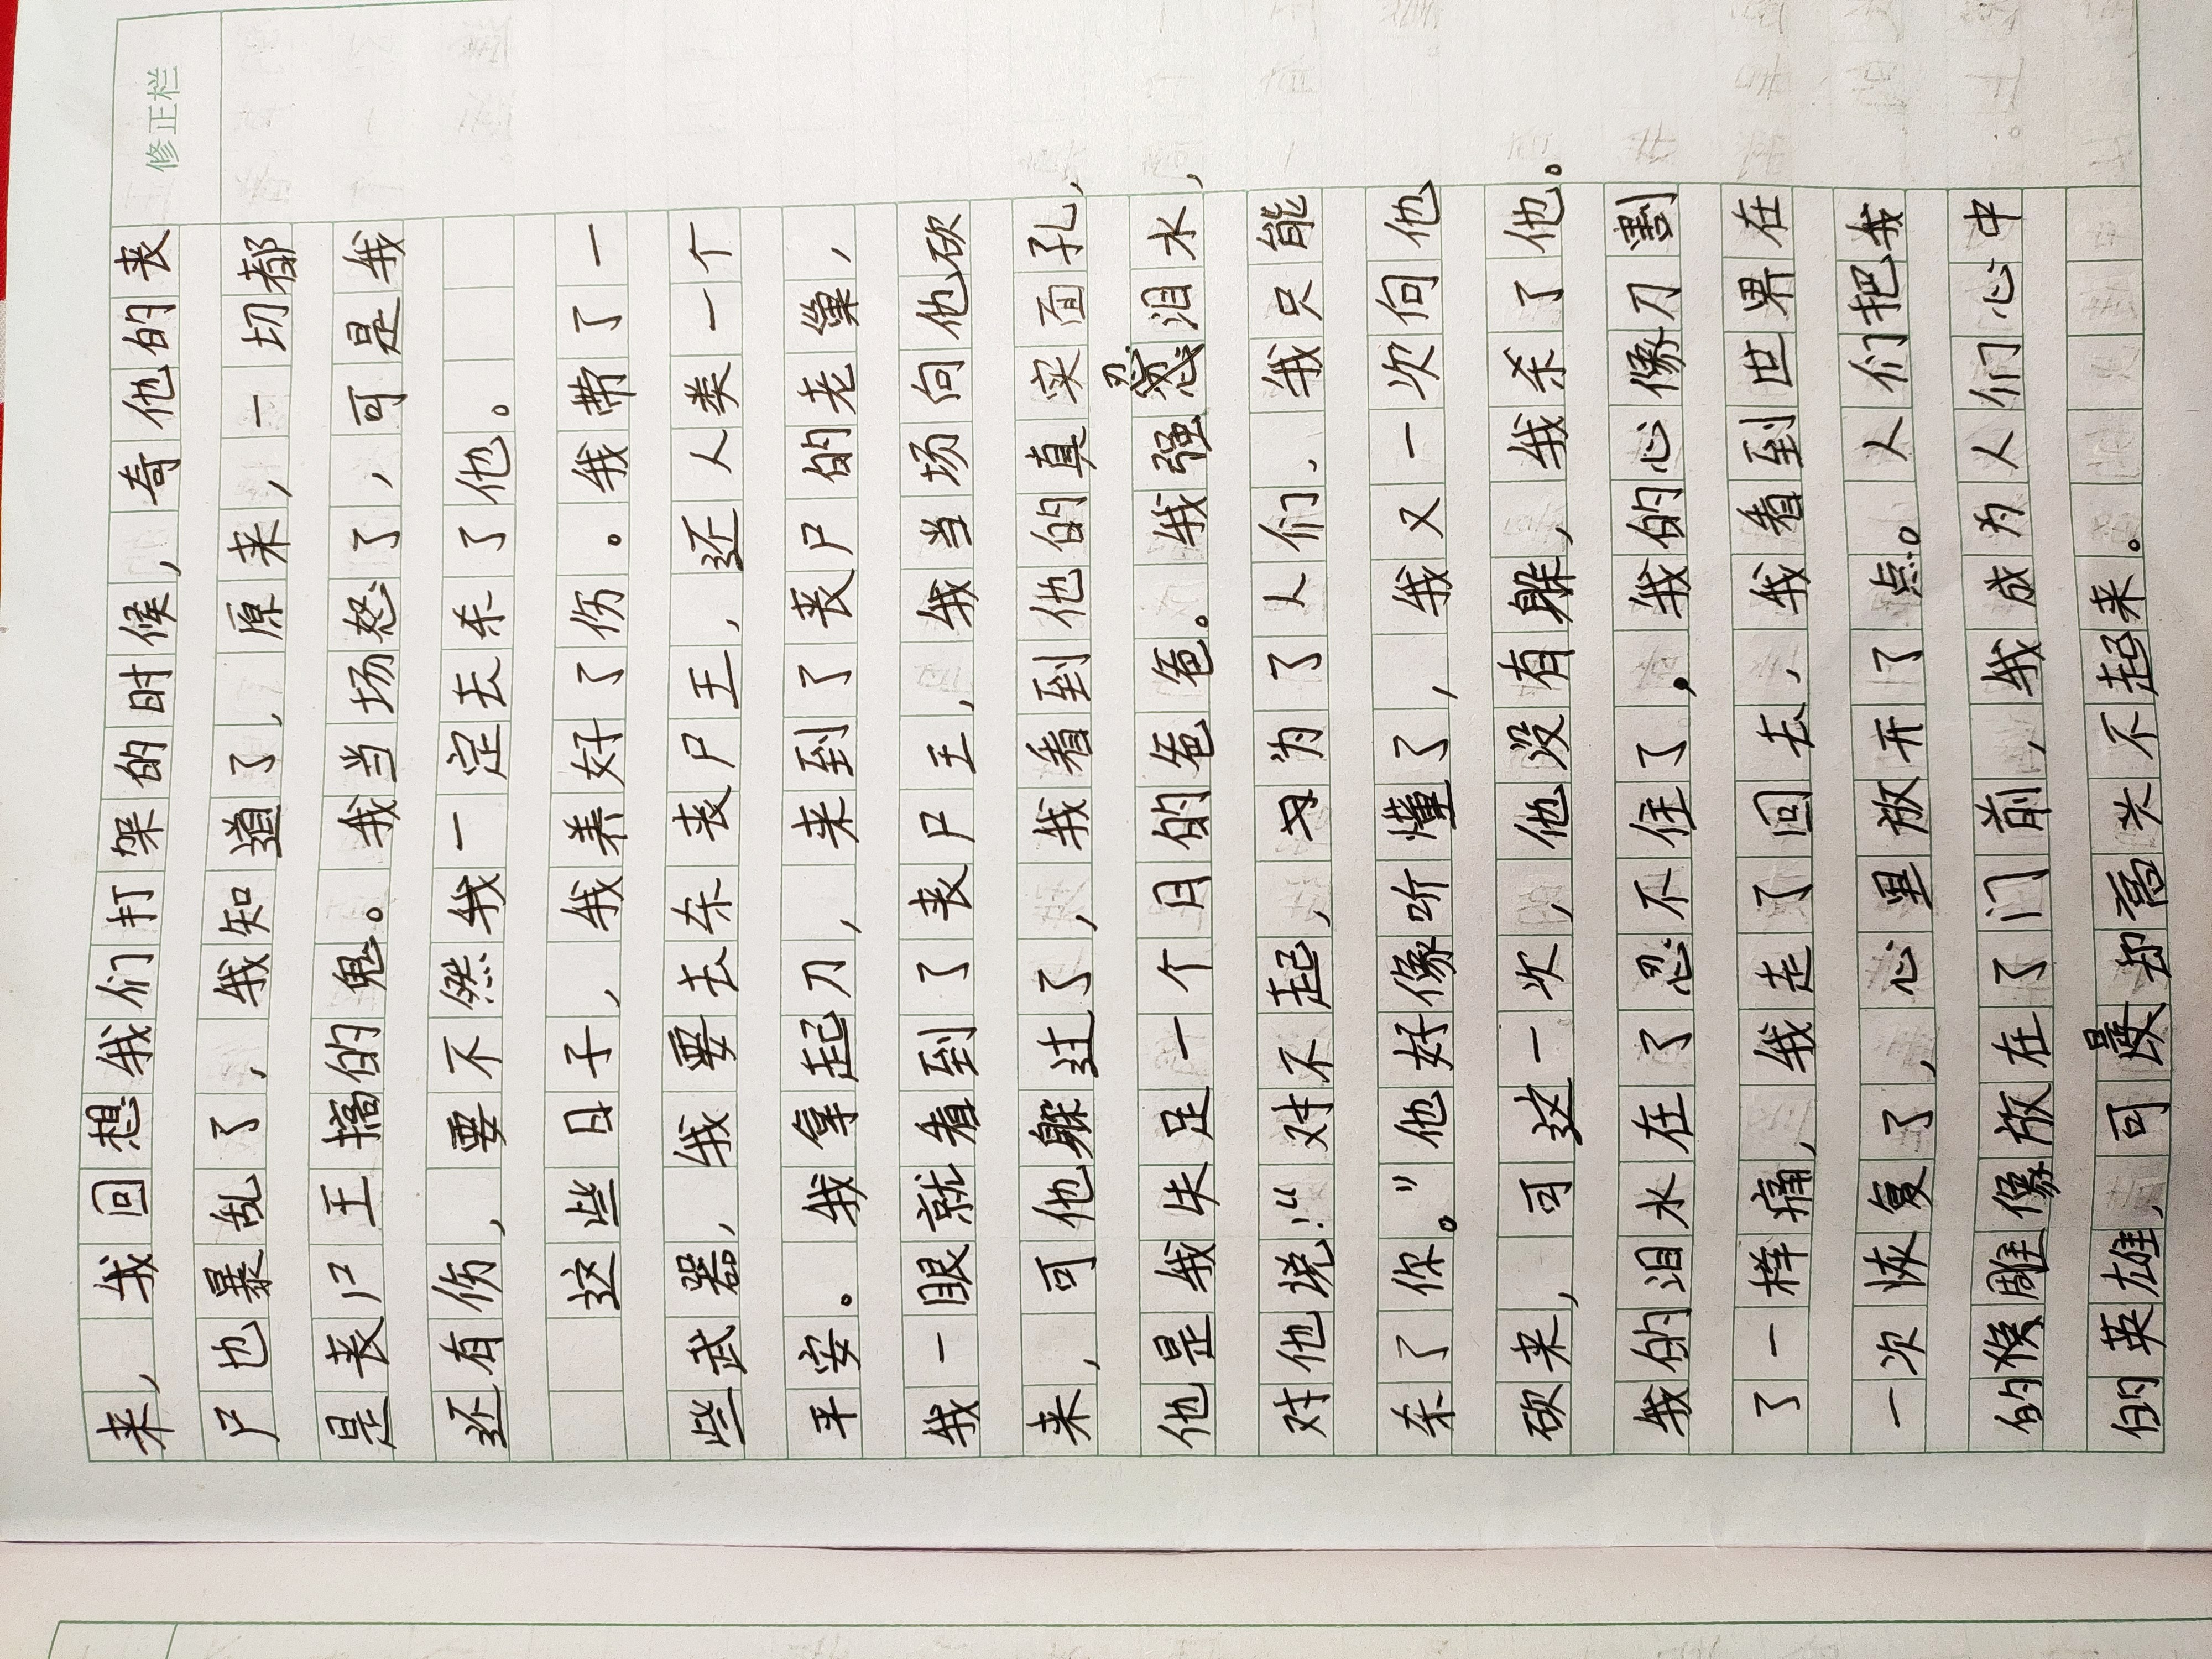 修正栏
来，我回想我们打架的时候，奇他的丧
尸也暴乱了，我知道了，原来，一切都
是丧尸王搞的鬼。我当场怒了，可是我
还有伤，要不然我一定去杀了他。
这些日子，我养好了伤。我带了一
些武器，我要去杀丧尸王，还人类一个
平安。我拿起刀，来到了丧尸的老巢，
我一眼就看到了丧尸王，我当场向他砍
来，可他躲过了，我看到他的真实面孔，
他是我失足一个月的爸爸。我强忍泪水，
对他说：“对不起，为了人们，我只能
杀了你。”他好像听懂了，我又一次向他
砍来，可这一次，他没有躲，我杀了他。
我的泪水在了忍不住了，我的心像刀割
了一样痛，我走了回去，我看到世界在
一次恢复了，心里放开了点。人们把我
的雕像放在了门前，我成为人们心中
的英雄，可却高兴不起来。